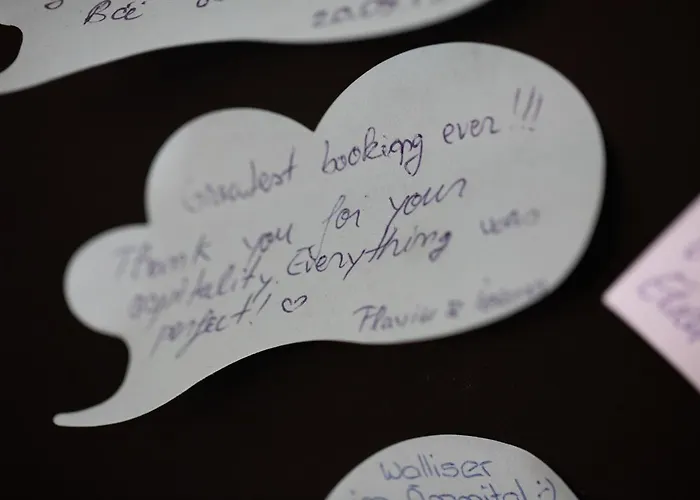 Все
20.09
Greatest booking ever!!!
Thank you for your
ospitality. Everything was
perfect! ♡
Flavius &
Walliser